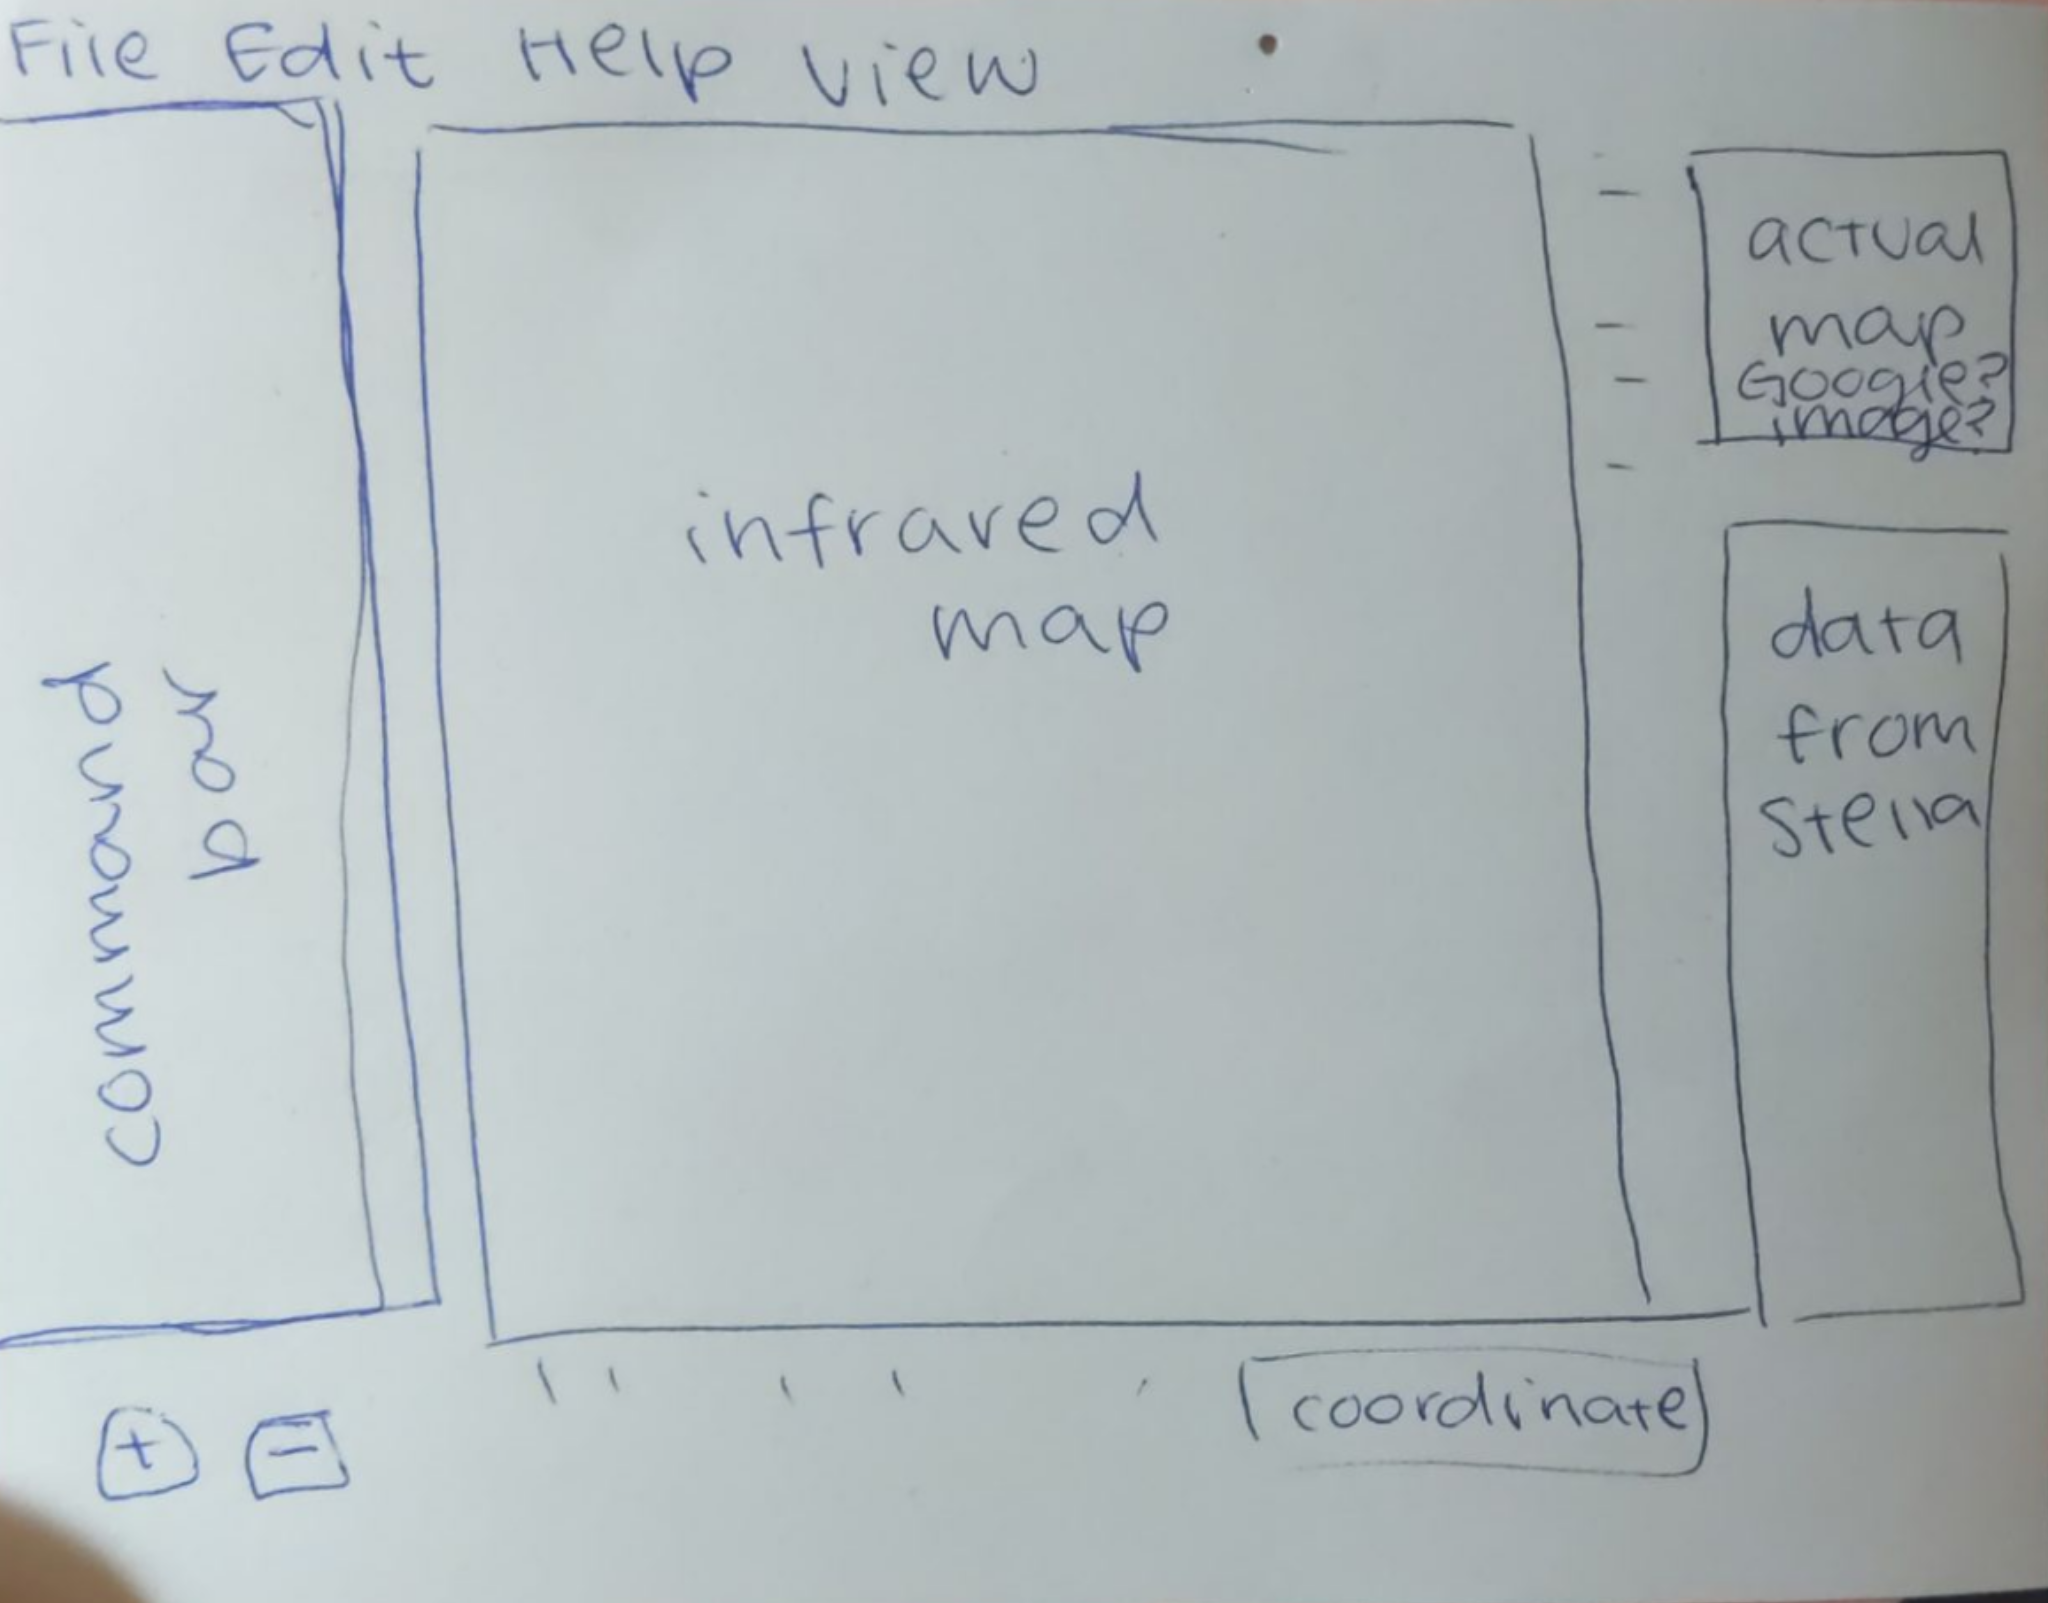 File Edit Help View
command
bar
infrared
map
actual
map
Google?
image?
data
from
Stella
+ -
coordinate